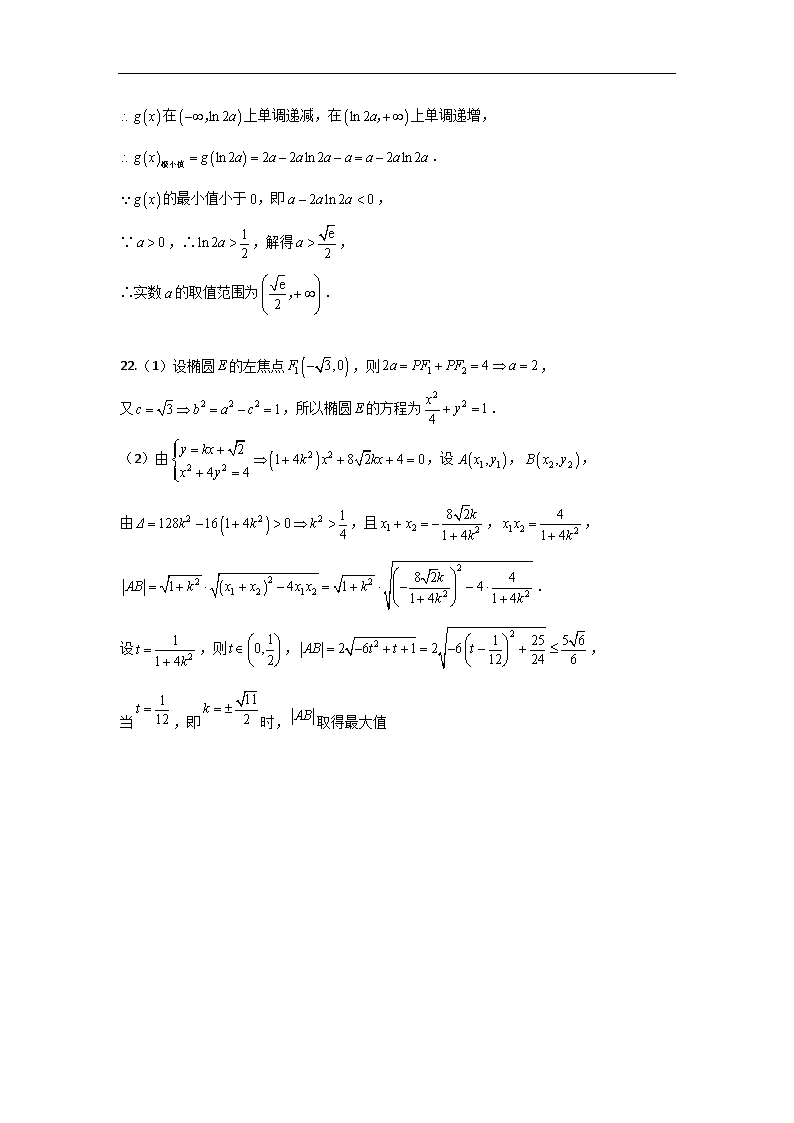 ∴ g(x)在(−∞,ln 2a)上单调递减，在(ln 2a,+∞)上单调递增，
∴ g(x)极小值 = g(ln 2a) = 2a − 2a ln 2a − a = a − 2a ln 2a．
∵ g(x)的最小值小于0，即 a − 2a ln 2a < 0，
∵ a > 0，∴ ln 2a > 1/2，解得 a > √e/2，
∴实数 a 的取值范围为(√e/2,+∞)．
22.（1）设椭圆E的左焦点F₁(−√3,0)，则2a = PF₁ + PF₂ = 4 ⇒ a = 2，
又c = √3 ⇒ b² = a² − c² = 1，所以椭圆E的方程为 x²/4 + y² = 1．
（2）由{y = kx + √2, x² + 4y² = 4 ⇒ (1 + 4k²)x² + 8√2kx + 4 = 0，设 A(x₁,y₁)，B(x₂,y₂)，
由Δ = 128k² − 16(1 + 4k²) > 0 ⇒ k² > 1/4，且x₁ + x₂ = − 8√2k/(1 + 4k²)，x₁x₂ = 4/(1 + 4k²)，
|AB| = √(1 + k²) · √((x₁ + x₂)² − 4x₁x₂) = √(1 + k²) · √((− 8√2k/(1 + 4k²))² − 4 · 4/(1 + 4k²))．
设t = 1/(1 + 4k²)，则t ∈ (0,1/2)，|AB| = 2√(−6t² + t + 1) = 2√(−6(t − 1/12)² + 25/24) ≤ 5√6/6，
当t = 1/12，即k = ±√11/2时，|AB|取得最大值